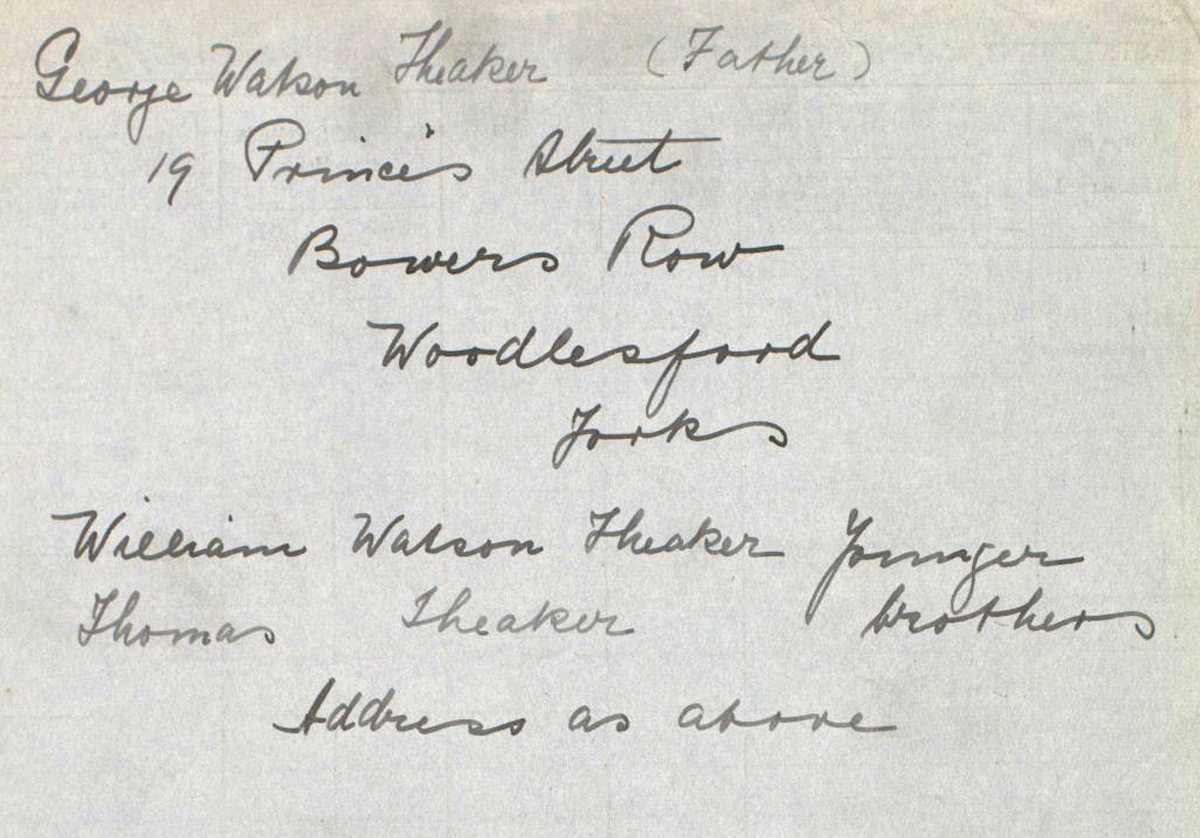 George Watson Theaker (Father)
19 Prince's Street
Bowers Row
Woodlesford
Yorks
William Watson Theaker Younger
Thomas Theaker brothers
Address as above